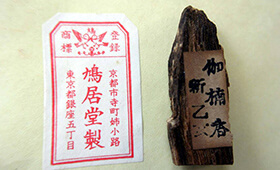 登録
商標
京都市寺町姉小路
鳩居堂製
東京都銀座五丁目
伽楠香
新乙